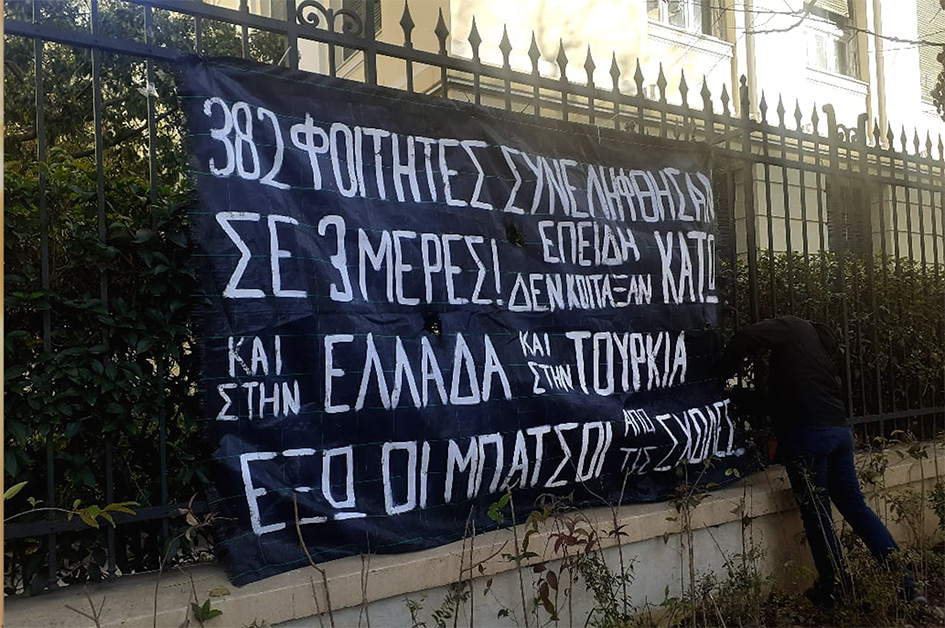 382 ΦΟΙΤΗΤΕΣ ΣΥΝΕΛΗΦΘΗΣΑΝ
ΣΕ 3 ΜΕΡΕΣ! ΕΠΕΙΔΗ ΔΕΝ ΚΟΙΤΑΞΑΝ ΚΑΤΩ
ΚΑΙ ΣΤΗΝ ΕΛΛΑΔΑ ΚΑΙ ΣΤΗΝ ΤΟΥΡΚΙΑ
ΕΞΩ ΟΙ ΜΠΑΤΣΟΙ ΑΠΟ ΤΙΣ ΣΧΟΛΕΣ